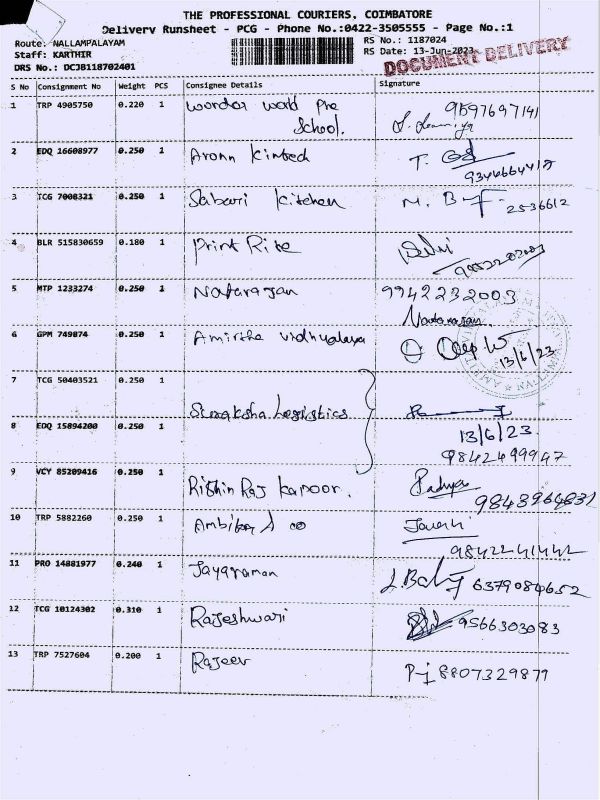 THE PROFESSIONAL COURIERS, COIMBATORE
Delivery Runsheet - PCG - Phone No.:0422-3505555 - Page No.:1
Route: NALLAMPALAYAM
RS No.: 1187024
Staff: KARTHIR
RS Date: 13-Jun-2023
DRS No.: DCJB118702401
DOCUMENT DELIVERY
S No Consignment No Weight PCS Consignee Details Signature
1 TRP 4905750 0.220 1 Wonder World Pre 9597697141
School.
2 EDQ 16608977 0.250 1 T.
3 TCG 7008321 0.250 1 Sabari Kitchen M. 2536612
4 BLR 515830659 0.180 1 Print Rite
5 MTP 1233274 0.250 1 Natarajan 9942232003
Natarajan.
6 GPM 749874 0.250 1 Amirtha Vidhyalaya
13/6/23
7 TCG 50403521 0.250 1
Logistics
8 EDQ 15894200 0.250 1
13/6/23
9842499947
9 VCY 85209416 0.250 1 Rishin Raj Kapoor.
9843964831
10 TRP 5882260 0.250 1 & co
9842241442
11 PRO 14881977 0.240 1 Jayaraman 6379084652
12 TCG 10124302 0.310 1 Rajeshwari 9566303083
13 TRP 7527604 0.200 1 Rajeev 8807329871